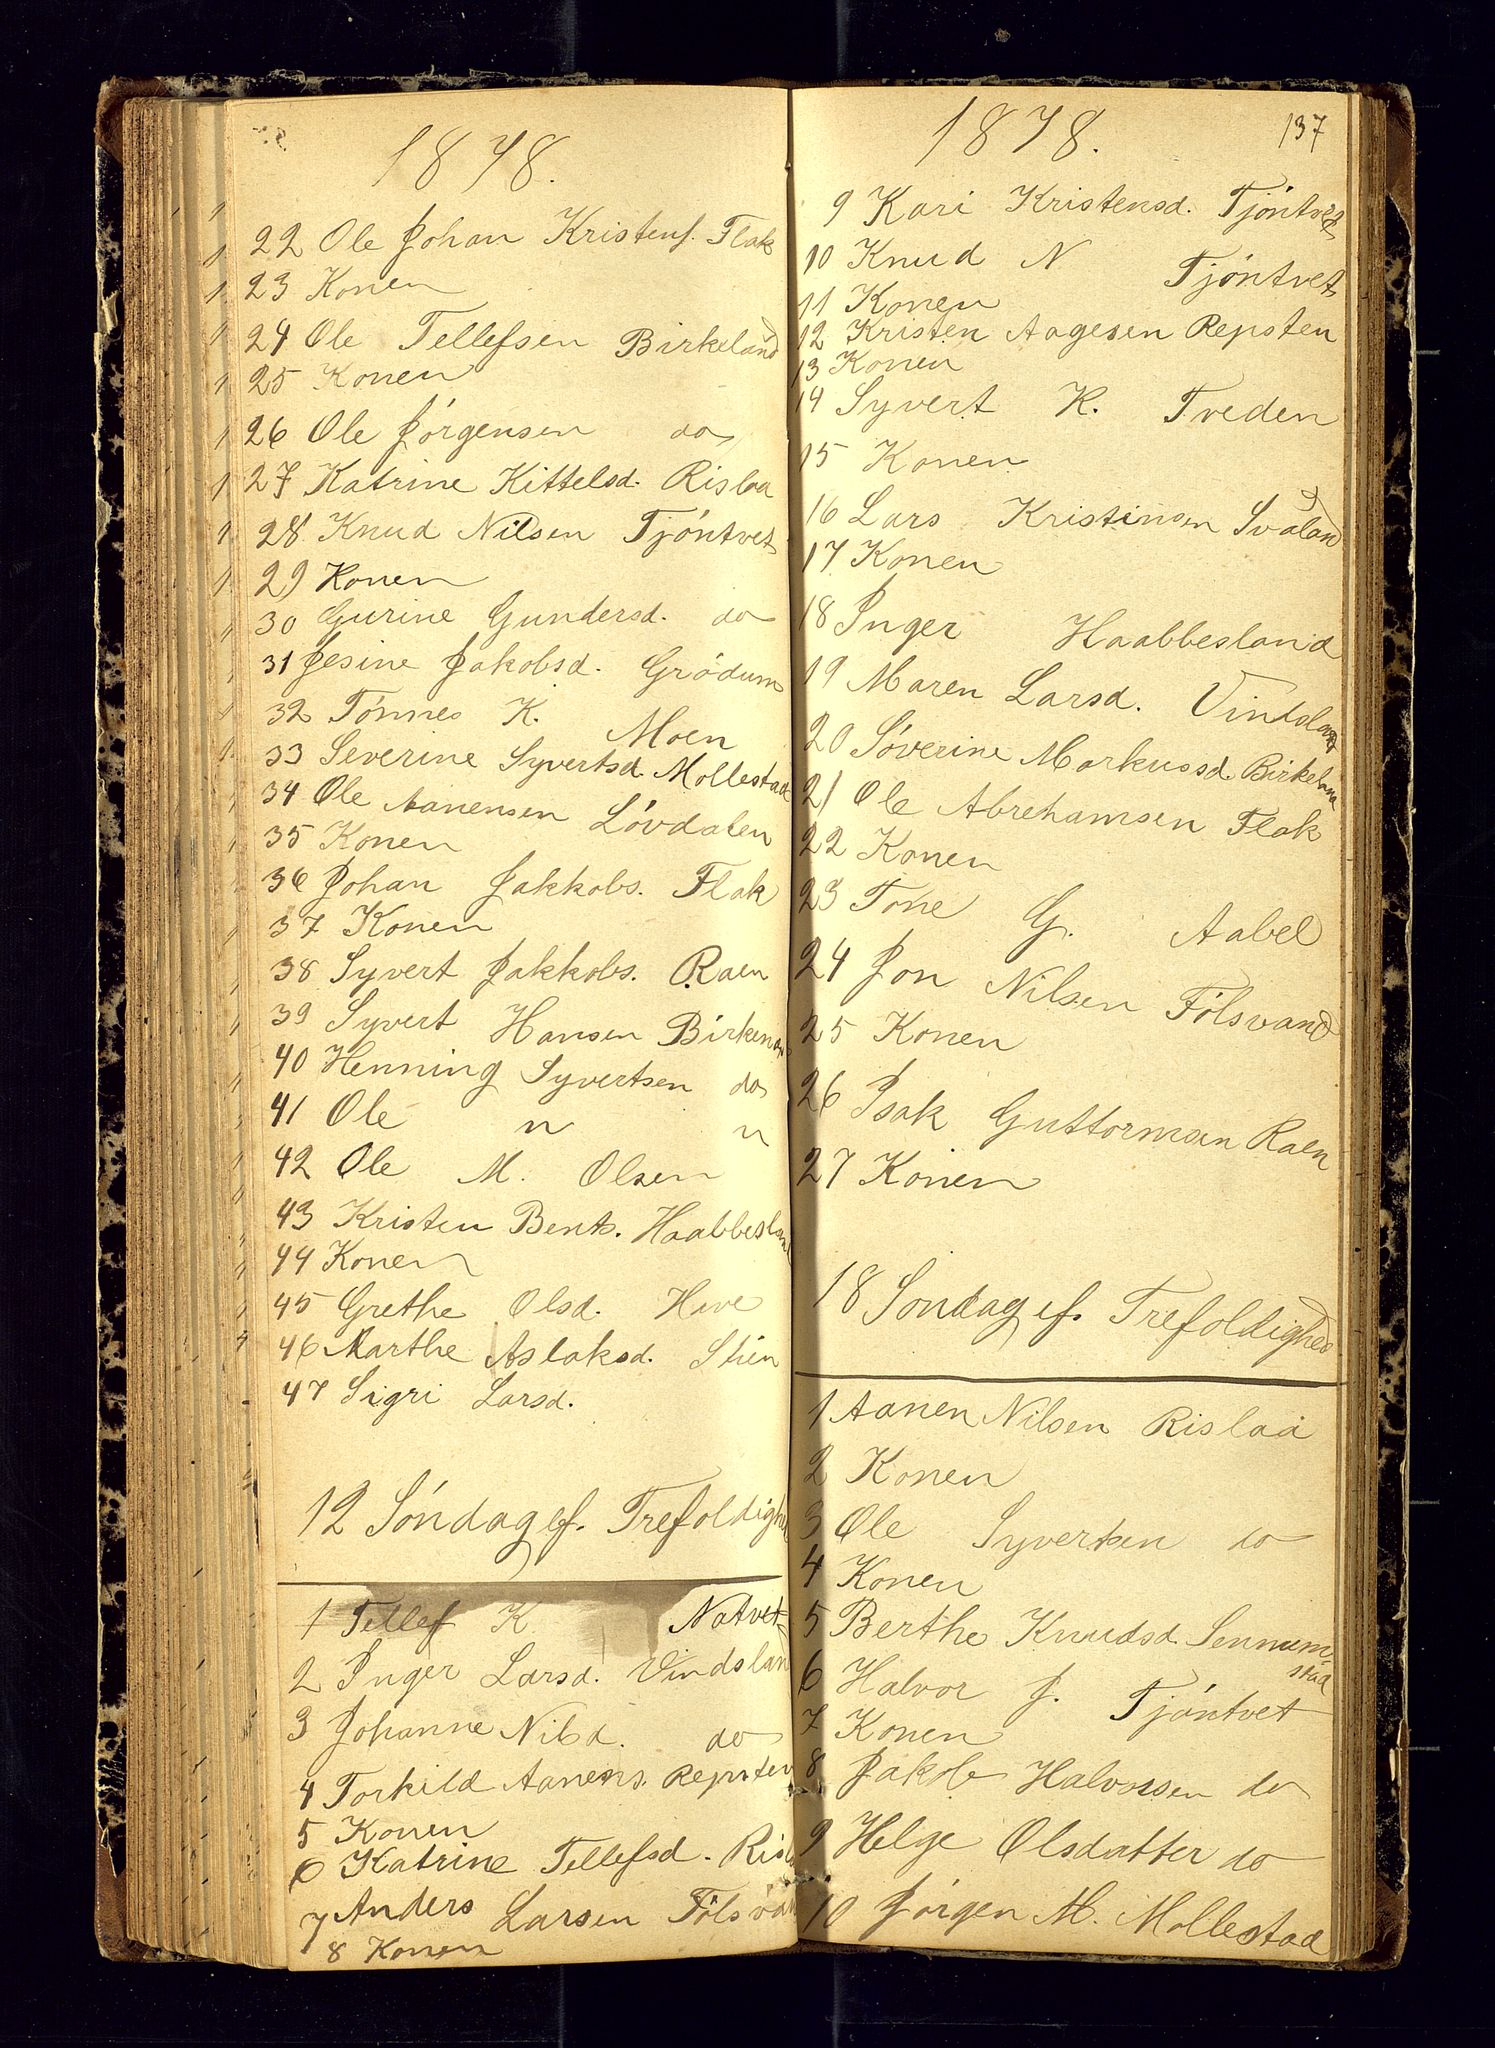 1878.
22 Ole Johan Kristens. Flak
23 Konen
24 Ole Tellefsen Birkeland
25 Konen
26 Ole Jörgensen do
27 Katrine Kittelsd. Rislaa
28 Knud Nilsen Tjöntvet
29 Konen
30 Gurine Gundersd. do
31 Jesine Jakobsd. Grödum
32 Tönnes K. Moen
33 Severine Syvertsd. Mollestad
34 Ole Aanensen Lövdalen
35 Konen
36 Johan Jakkobs. Flak
37 Konen
38 Syvert Jakkobs. Raen
39 Syvert Hansen Birkenes
40 Henning Syvertsen do
41 Ole " "
42 Ole M. Olsen
43 Kristen Bents. Haabbesland
44 Konen
45 Grethe Olsd. Hive
46 Marthe Aslaksd. Stien
47 Sigri Larsd.
12 Söndag ef. Trefoldighed
1 Tellef K Natvet
2 Inger Larsd. Vindsland
3 Johanne Nilsd. do
4 Torkild Aanens. Repsten
5 Konen
6 Katrine Tellefsd. Risl
7 Anders Larsen Fölsvan
8 Konen
1878.
137
9 Kari Kristensd. Tjöntvedt
10 Knud N Tjöntvet
11 Konen
12 Kristen Aagesen Repsten
13 Konen
14 Syvert K. Tveden
15 Konen
16 Lars Kristensen Svaland
17 Konen
18 Inger Haabbesland
19 Maren Larsd. Vindsland
20 Söverine Markusd. Birkeland
21 Ole Abrehamsen Flak
22 Konen
23 Tone G. Aabel
24 Jon Nilsen Fölsvand
25 Konen
26 Isak Guttormsen Raen
27 Konen
18 Söndag ef. Trefoldighed
1 Aanen Nilsen Rislaa
2 Konen
3 Ole Syvertsen do
4 Konen
5 Berthe Knudsd. Sennum-
stad
6 Halvor J. Tjöntvet
7 Konen
8 Jakob Halvorsen do
9 Helge Olsdatter do
10 Jörgen M. Mollestad